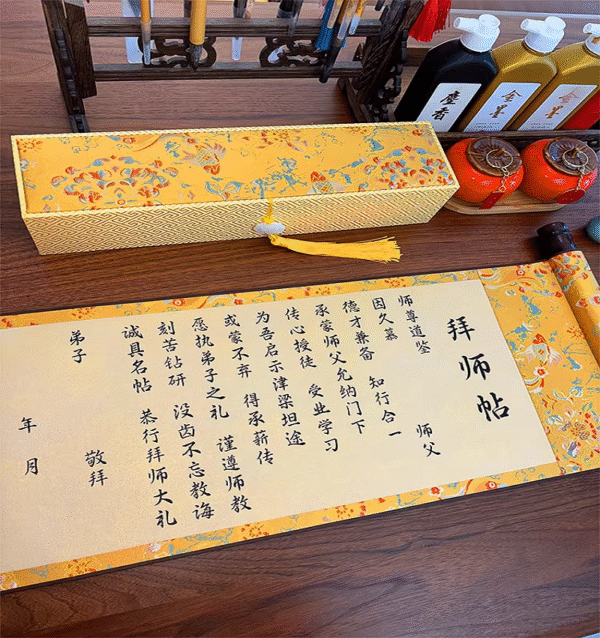 麝香
金墨
金墨
拜师帖
师尊道鉴
因久慕 师父
德才兼备 知行合一
承蒙师父允纳门下
传心授徒 受业学习
为吾启示津梁坦途
或蒙不弃 得承薪传
愿执弟子之礼 谨遵师教
刻苦钻研 没齿不忘教诲
诚具名帖 恭行拜师大礼
弟子 敬拜
年 月